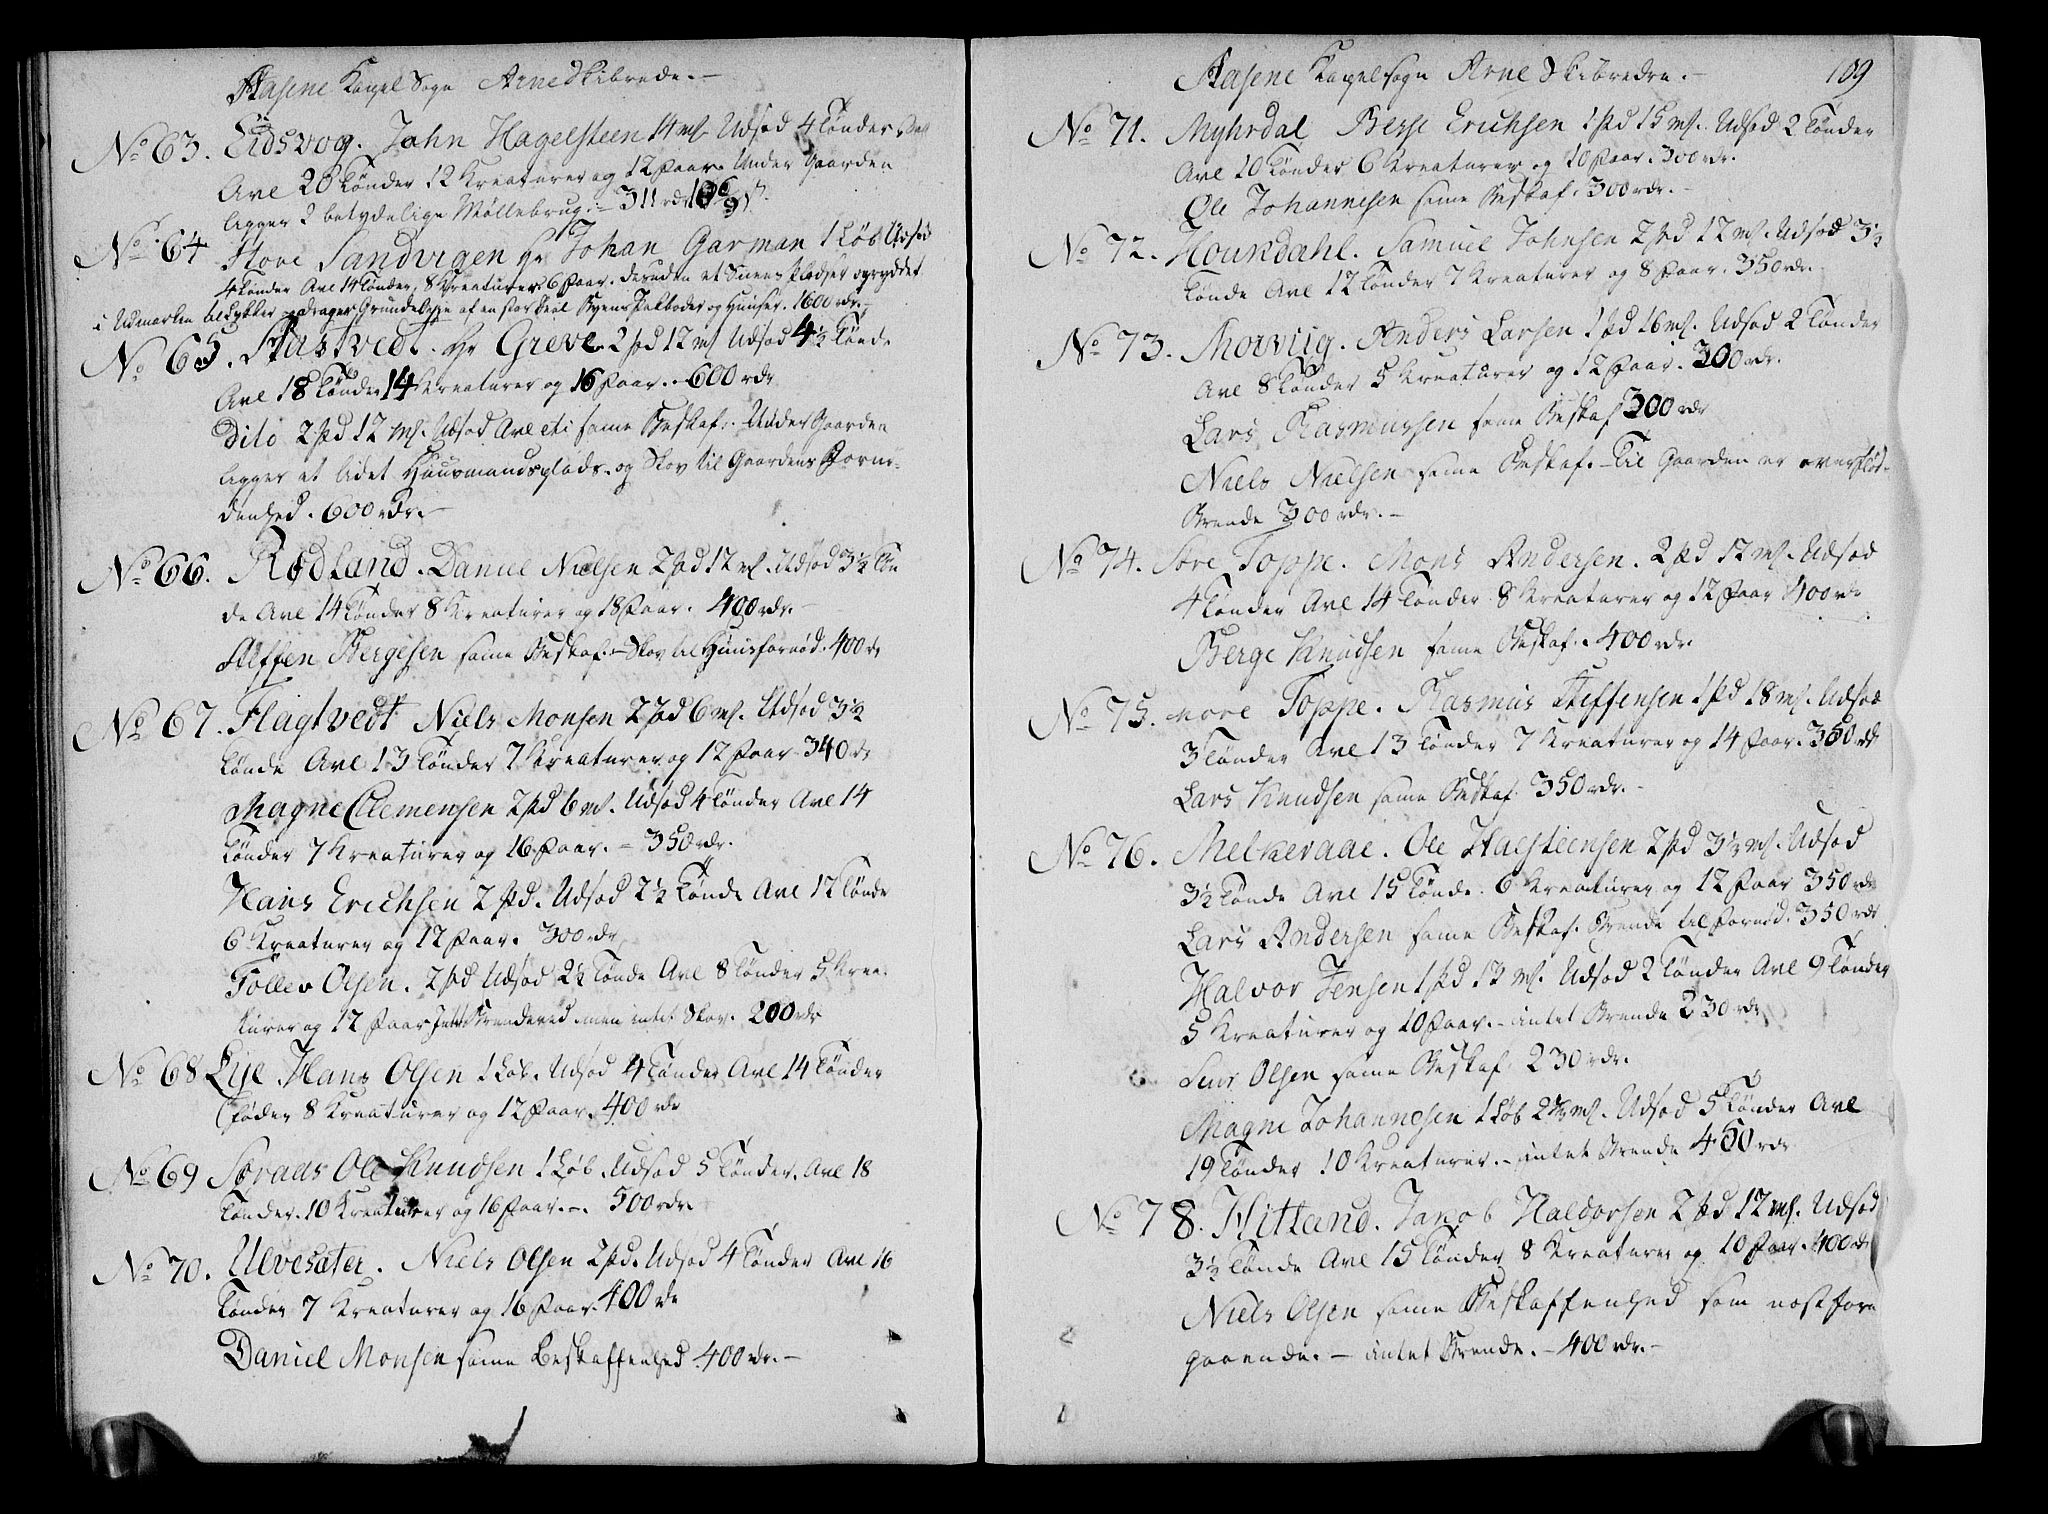 Aasene Kapel Sogn Arne Skibrede. –
No 63. Eidsvog. John Hagelsteen 14 mк Udsød 4 Tønder
Avl 20 Tønder 12 Kreaturer og 12 Faar. Under Gaarden
ligger 2 betydelige Møllebrug. – 311 rdr
No 64 Store Sandvigen Hr Johan Garman 1 Løb Udsød
4 Tønder Avl 14 Tønder, 8 Kreaturer 6 Faar. desuden et
i Udmarken og drager Grundeleje af en stor Deel Byens og Huuser. 1600 rdr. –
No 65. Aastvedt. Hr Greve 2 pd 12 mк Udsød 4½ Tønde
Avl 18 Tønder 14 Kreaturer og 16 Faar. – 600 rdr
Dito 2 pd 12 mк. Udsød Avl etc. same Beskaf. – Under Gaarden
ligger et lidet Huusmandsplads. og Skov til Gaardens Forno-
denhed. 600 rdr. –
No 66. Rødland. Daniel Nielsen 2 pd 12 mк. Udsød 3½ Tøn
de Avl 14 Tønder 8 Kreaturer og 18 Faar. 400 rdr. –
Steffen Bergesen same Beskaf. – Skov til Huusfornød. 400 rd
No 67. Flagtvedt Niels Monsen 2 pd 6 mк. Udsød 3½
Tønde Avl 13 Tønder 7 Kreaturer og 12 Faar 340 rd
Magne Clemensen 2 pd 6 mк. Udsød 4 Tønder Avl 14
Tønder 7 Kreaturer og 16 Faar. – 350 rdr.
Hans Erichsen 2 pd. Udsød 2½ Tønde Avl 12 Tønde
6 Kreaturer og 12 Faar. 300 rdr.
Tollev Olsen. 2 pd Udsød 2½ Tønde Avl 8 Tønder 5 Krea
turer og 12 Faar Brendeved men intet Skov. 200 rdr
No 68 Lije. Hans Olsen 1 Løb. Udsød 4 Tønder Avl 14 Tønder
føder 8 Kreaturer og 12 Faar. 400 rdr
No 69 Soraas Ole Knudsen 1 Løb. Udsød 5 Tønder. Avl 18
Tønder. 10 Kreaturer og 16 Faar. –. 500 rdr.
No 70. Ulvesæter. Niels Olsen 2 pd. Udsød 4 Tønder Avl 16
Tønder 7 Kreaturer og 16 Faar. 400 rdr
Daniel Monsen same Beskaffenhed 400 rdr. –
Aasene Kapelsogn Arne Skibredre. –
109
No 71. Myhrdal Besse Erichsen 1 pd 15 mк. Udsød 2 Tønder
Avl 10 Tønder 6 Kreaturer og 10 Faar. 300 rdr.
Ole Johannesen same Beskaf. 300 rdr. –
No 72. Houkdahl. Samuel Johnsen 2 pd 12 mк. Udsød 3½
Tønde Avl 12 Tønder 7 Kreaturer og 8 Faar. 350 rdr. –
No 73. Morviig. Anders Larsen 1 pd 16 mк. Udsød 2 Tønder
Avl 8 Tønder 5 Kreaturer og 12 Faar. 300 rdr.
Lars Rasmussen same Beskaf 300 rdr
Niels Nielsen same Beskaf. – Til Gaarden er overflød-
Brende 300 rdr. –
No 74. Store Toppe. Mons Andersen. 2 pd 12 mк. Udsød
4 Tønder Avl 14 Tønder 8 Kreaturer og 12 Faar 400 rdr
Berge Knudsen same Beskaf. 400 rdr.
No 75. more Toppe. Rasmus Steffensen 1 pd 18 mк. Udsød
3 Tønder Avl 13 Tønder 7 Kreaturer og 14 Faar. 350 rdr
Lars Knudsen same Beskaf 350 rdr. –
No 76. Melkeraae. Ole Halsteensen 2 pd 3½ mк. Udsød
3½ Tønde Avl 15 Tønde 6 Kreaturer og 12 Faar 350 rdr
Lars Andersen same Beskaf. Brende til Fornød. 350 rdr
Halvor Jensen 1 pd 13 mк. Udsød 2 Tønder Avl 9 Tønder
5 Kreaturer og 10 Faar. – intet Brende 230 rdr
Siur Olsen same Beskaf 230 rdr.
Magne Johannesen 1 Løb 2½ mк. Udsød 5 Tønder Avl
19 Tønder 10 Kreaturer. – intet Brende 450 rdr
No 78. Hitland. Jacob Haldorsen 2 pd 12 mк. Udsød
3½ Tønde Avl 15 Tønder 8 Kreaturer og 10 Faar. 400 rdr
Niels Olsen same Beskaffenhed som næstfore
gaaende. – intet Brende. – 400 rdr. –